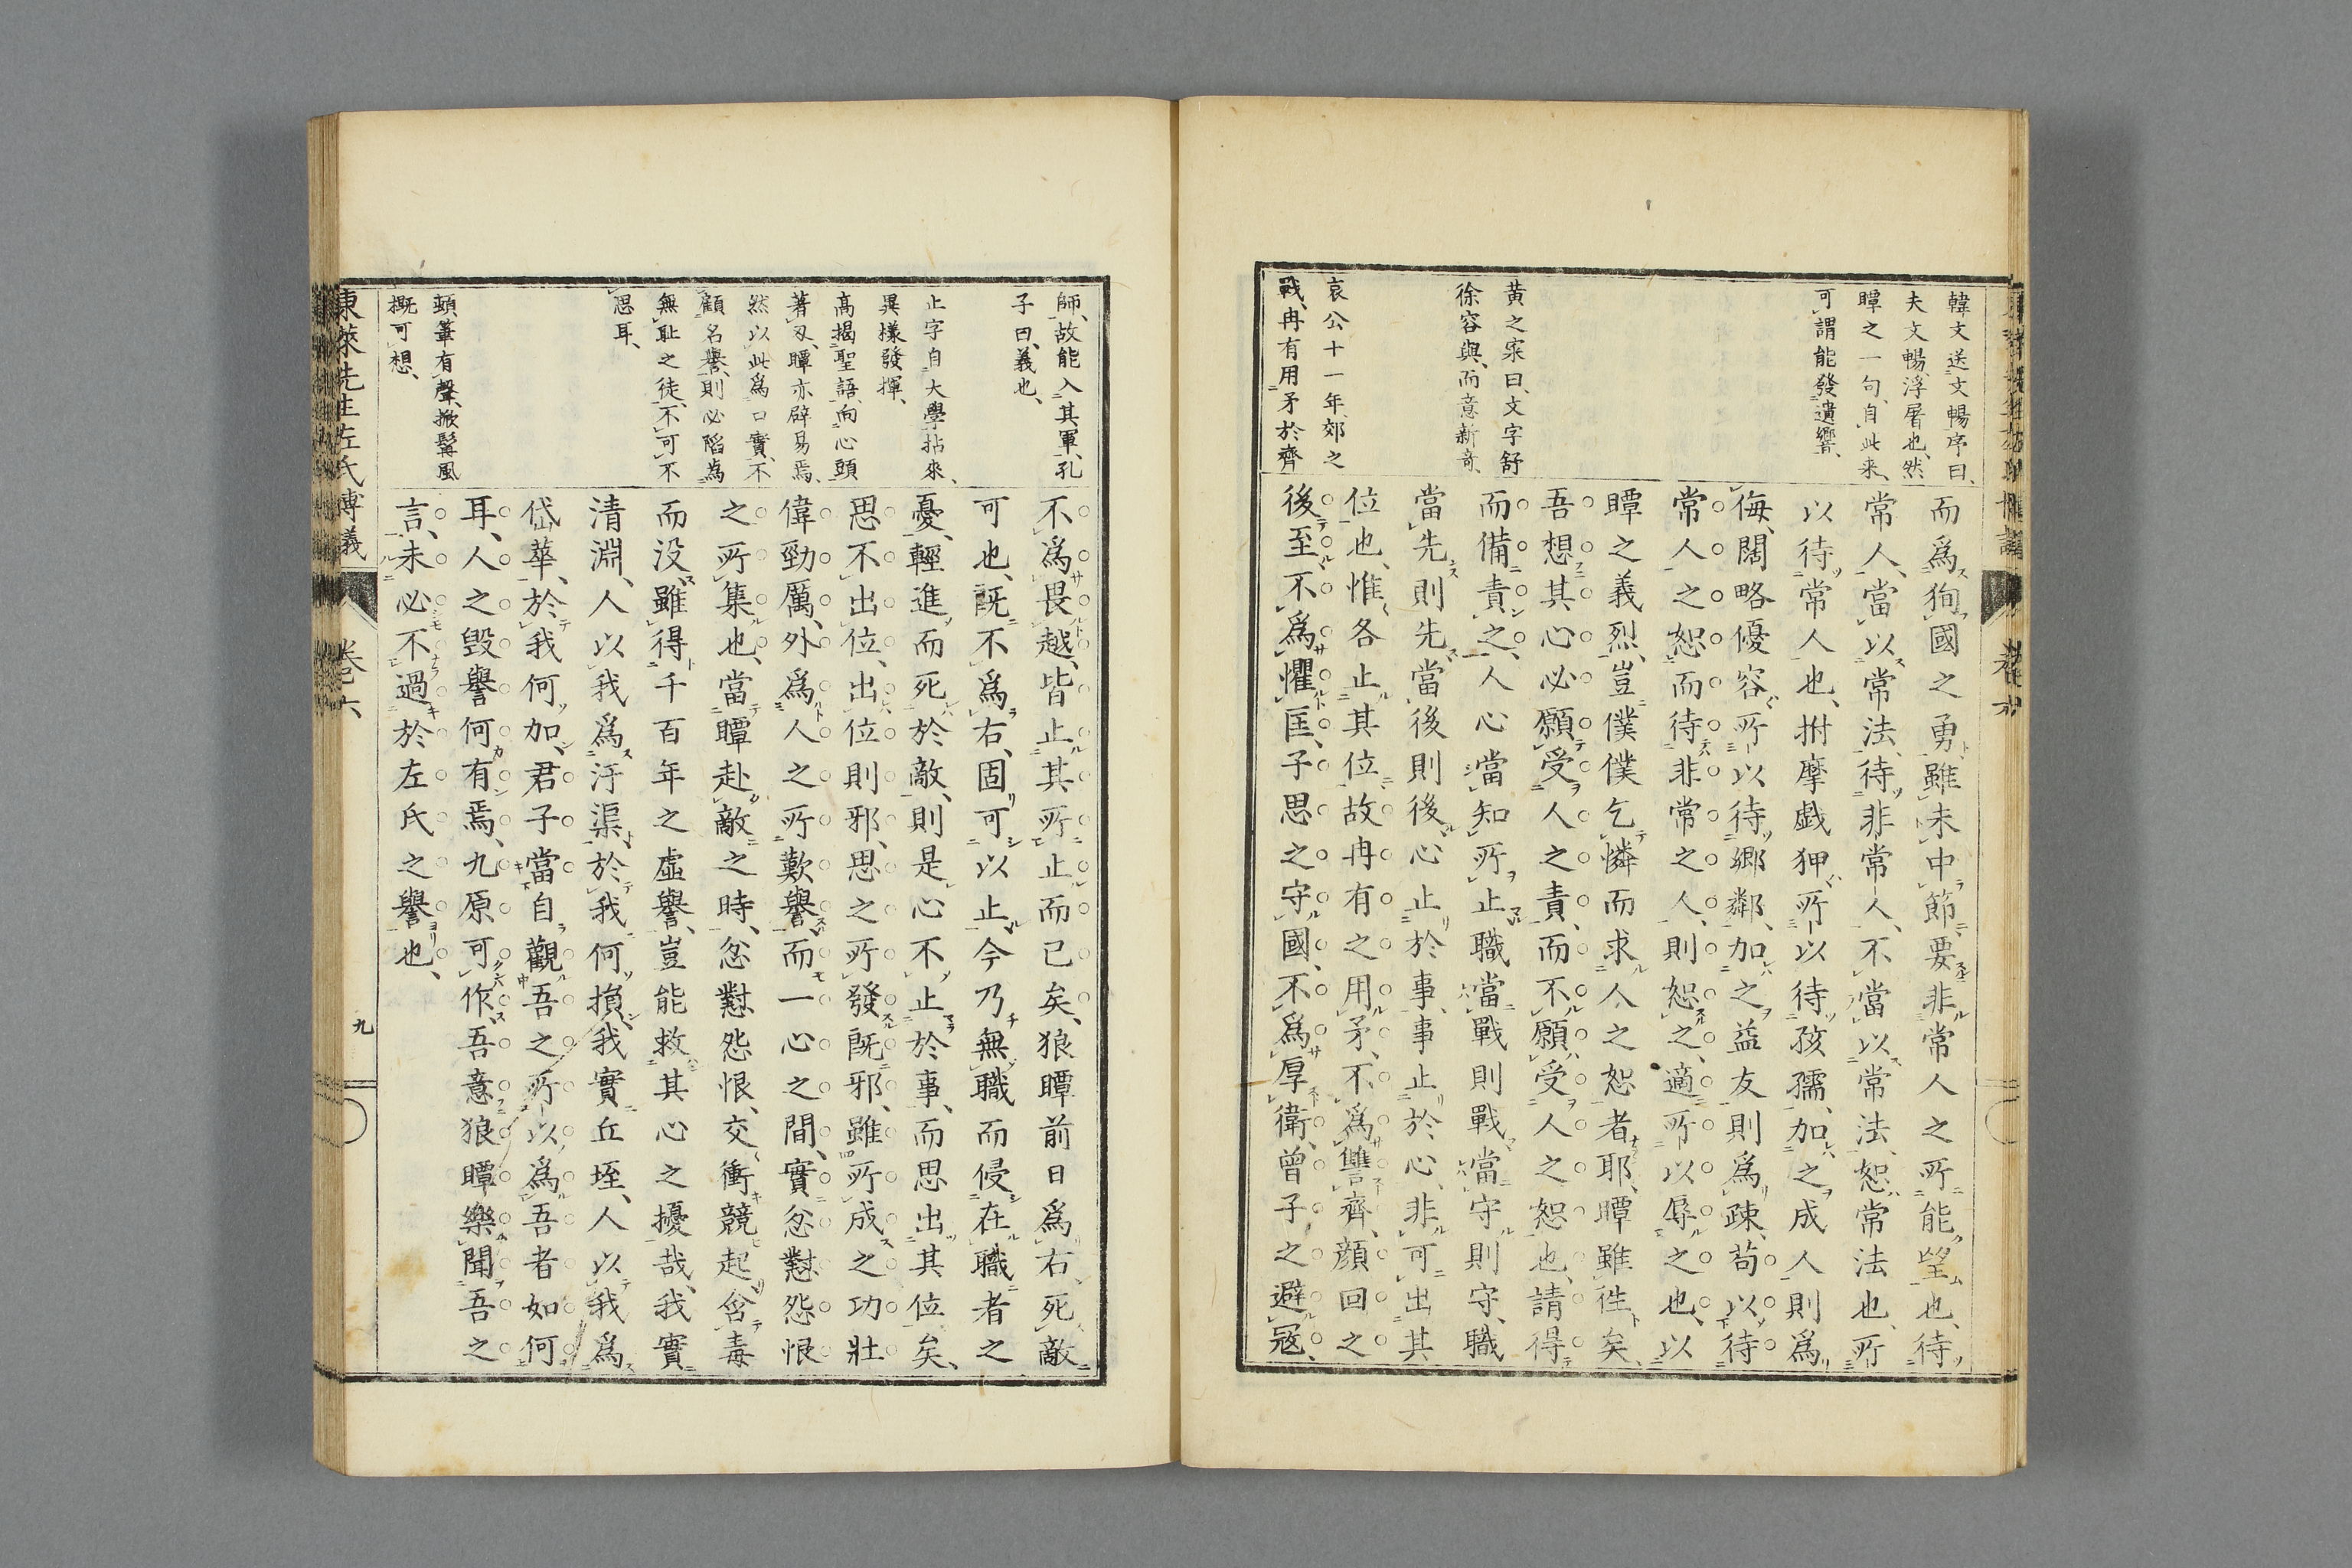 韓文送文暢序曰、
夫文暢、浮屠也、然
瞫之一句、自此来、
可謂能發遺響、
黄之寀曰、文字舒
徐容與、而意新竒、
哀公十一年、郊之
戰、冉有用矛於齊
而爲狥國之勇、雖未中節、要非常人之所能望也、待
常人、當以常法、待非常人、不當以常法、恕常法也、所
以待常人也、拊摩戯狎、所以待孩孺、加之成人則爲
侮、闊略優容、所以待郷鄰、加之益友則爲疎、苟以待
常人之恕、而待非常之人、則恕之、適所以辱之也、以
瞫之義烈、豈僕僕乞憐而求人之恕者耶、瞫雖徃矣、
吾想其心必願受人之責、而不願受人之恕也、請得
而備責之、人心當知所止、職當戰則戰、當守則守、職
當先則先、當後則後、心止於事、事止於心、非可出其
位也、惟各止其位、故冉有之用矛、不爲讐齊、顔回之
後至、不爲懼匡、子思之守國、不爲厚衛、曾子之避冦、
師、故能入其軍、孔
子曰、義也、
止字自大學拈來、
異樣發揮、
高揭聖語、向心頭
著刄、瞫亦辟易焉、
然以此爲口實、不
顧名譽、則必陷爲
無耻之徒、不可不
思耳、
頭筆有聲、掀髯風
概可想、
不爲畏越、皆止其所止而已矣、狼瞫前日爲右、死敵
可也、既不爲右、固可以止、今乃無職而侵在職者之
憂、輕進而死於敵、則是心不止於事、而思出其位矣、
思不出位、出位則邪、思之所發既邪、雖所成之功壯
偉勁厲、外爲人之所歎譽、而一心之間、實忿懟怨恨
之所集也、當瞫赴敵之時、忿懟怨恨、交衝競起、含毒
而没、雖得千百年之虛譽、豈能救其心之擾哉、我實
清淵、人以我爲汙渠、於我何損、我實丘垤、人以我爲
岱華、於我何加、君子當自觀吾之所以爲吾者如何
耳、人之毀譽何有焉、九原可作、吾意狼瞫樂聞吾之
言、未必不過於左氏之譽也、
東萊先生左氏博義
卷六
九